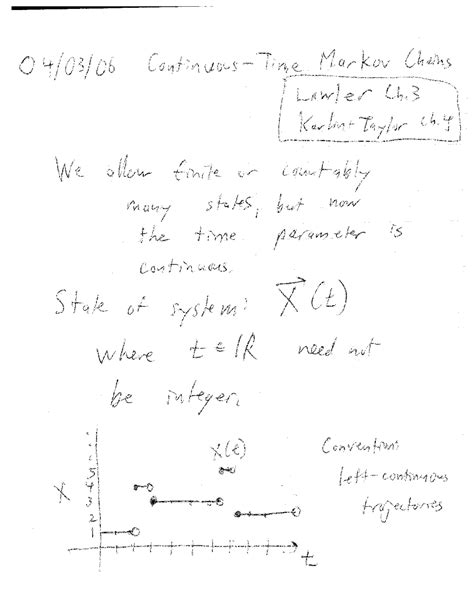 04/03/06 Continuous-Time Markov Chains
Lawler Ch.3
Karlin+Taylor Ch.4
We allow finite or countably
many states, but now
the time parameter is
continuous.
State of system: X⃗(t)
where t ∈ ℝ need not
be integer.
X(t)
X
5
4
3
2
1
t
Convention:
left-continuous
trajectories